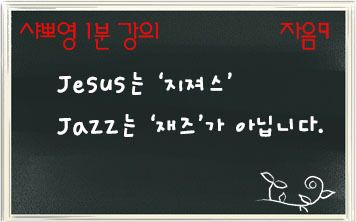 샤쁘영 1분 강의 자음9
Jesus는 '지져스'
Jazz는 '재즈'가 아닙니다.